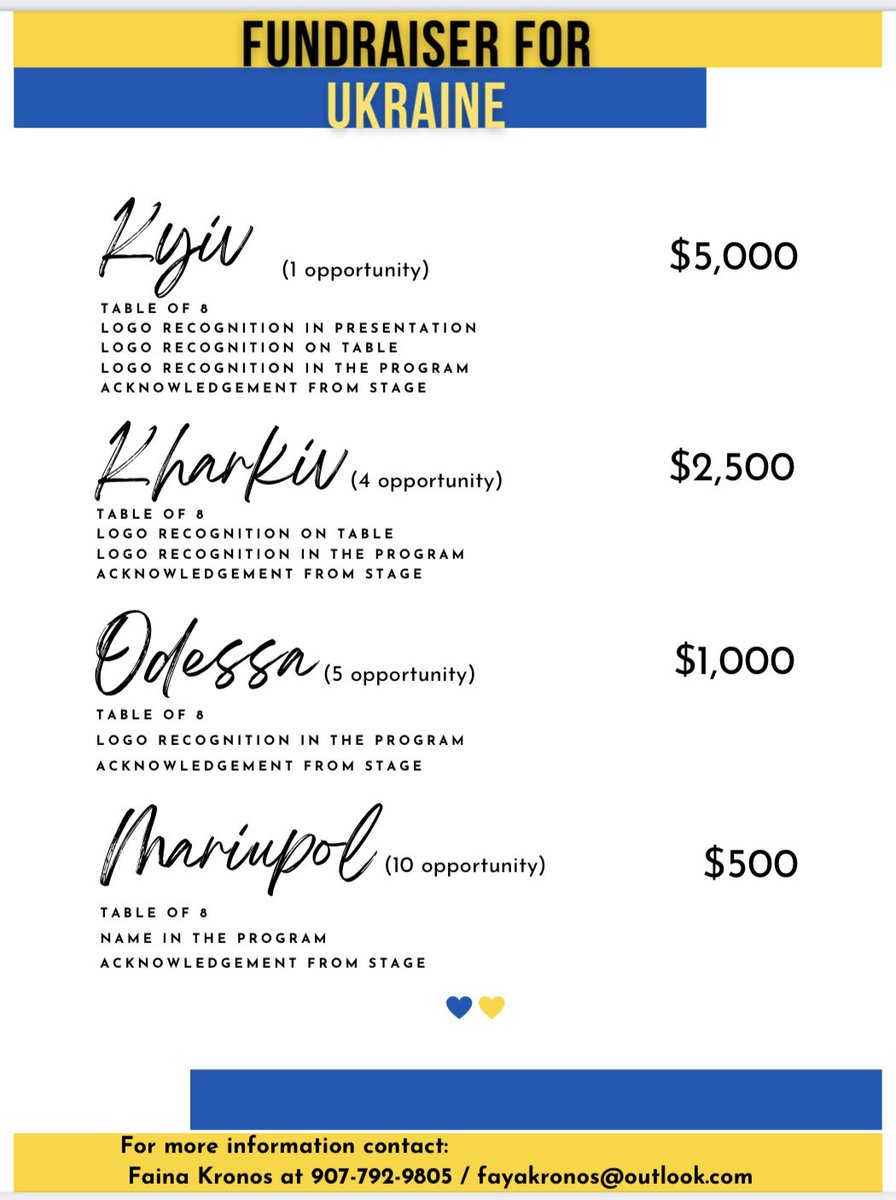 FUNDRAISER FOR
UKRAINE
Kyiv (1 opportunity) $5,000
TABLE OF 8
LOGO RECOGNITION IN PRESENTATION
LOGO RECOGNITION ON TABLE
LOGO RECOGNITION IN THE PROGRAM
ACKNOWLEDGEMENT FROM STAGE
Kharkiv (4 opportunity) $2,500
TABLE OF 8
LOGO RECOGNITION ON TABLE
LOGO RECOGNITION IN THE PROGRAM
ACKNOWLEDGEMENT FROM STAGE
Odessa (5 opportunity) $1,000
TABLE OF 8
LOGO RECOGNITION IN THE PROGRAM
ACKNOWLEDGEMENT FROM STAGE
Mariupol (10 opportunity) $500
TABLE OF 8
NAME IN THE PROGRAM
ACKNOWLEDGEMENT FROM STAGE
For more information contact:
Faina Kronos at 907-792-9805 / fayakronos@outlook.com